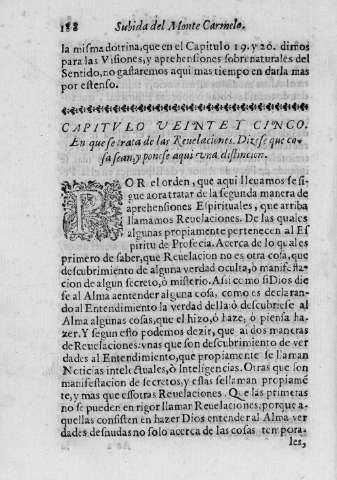 188 Subida del Monte Carmelo.
la misma dotrina, que en el Capitulo 19. y 20. dimos
para las Visiones, y aprehensiones sobrenaturales del
Sentido, no gastaremos aqui mas tiempo en darla mas
por estenso.
CAPITVLO VEINTE Y CINCO.
En que se trata de las Reuelaciones. Dizese que co-
sa sean, y ponese aqui vna distincion.
POR el orden, que aqui lleuamos se si-
gue aora tratar de la segunda manera de
aprehensiones Espirituales, que arriba
llamamos Reuelaciones. De las quales
algunas propiamente pertenecen al Es
piritu de Profecia. Acerca de lo qual es
primero de saber, que Reuelacion no es otra cosa, que
descubrimiento de alguna verdad oculta, ò manifesta-
cion de algun secreto, ò misterio. Asi como si Dios die
se al Alma a entender alguna cosa, como es declaran-
do al Entendimiento la verdad della ò descubriese al
Alma algunas cosas, que el hizo, ò haze, ò piensa ha-
zer. Y segun esto podemos dezir, que ai dos maneras
de Reuelaciones: vnas que son descubrimiento de ver
dades al Entendimiento, que propiamente se llaman
Noticias intelectuales, ò Inteligencias. Otras que son
manifestacion de secretos, y estas se llaman propiamē
te, y mas que essotras Reuelaciones. Que las primeras
no se pueden en rigor llamar Reuelaciones, porque a-
quellas consisten en hazer Dios entender al Alma ver
dades desnudas no solo acerca de las cosas tempora-
les,